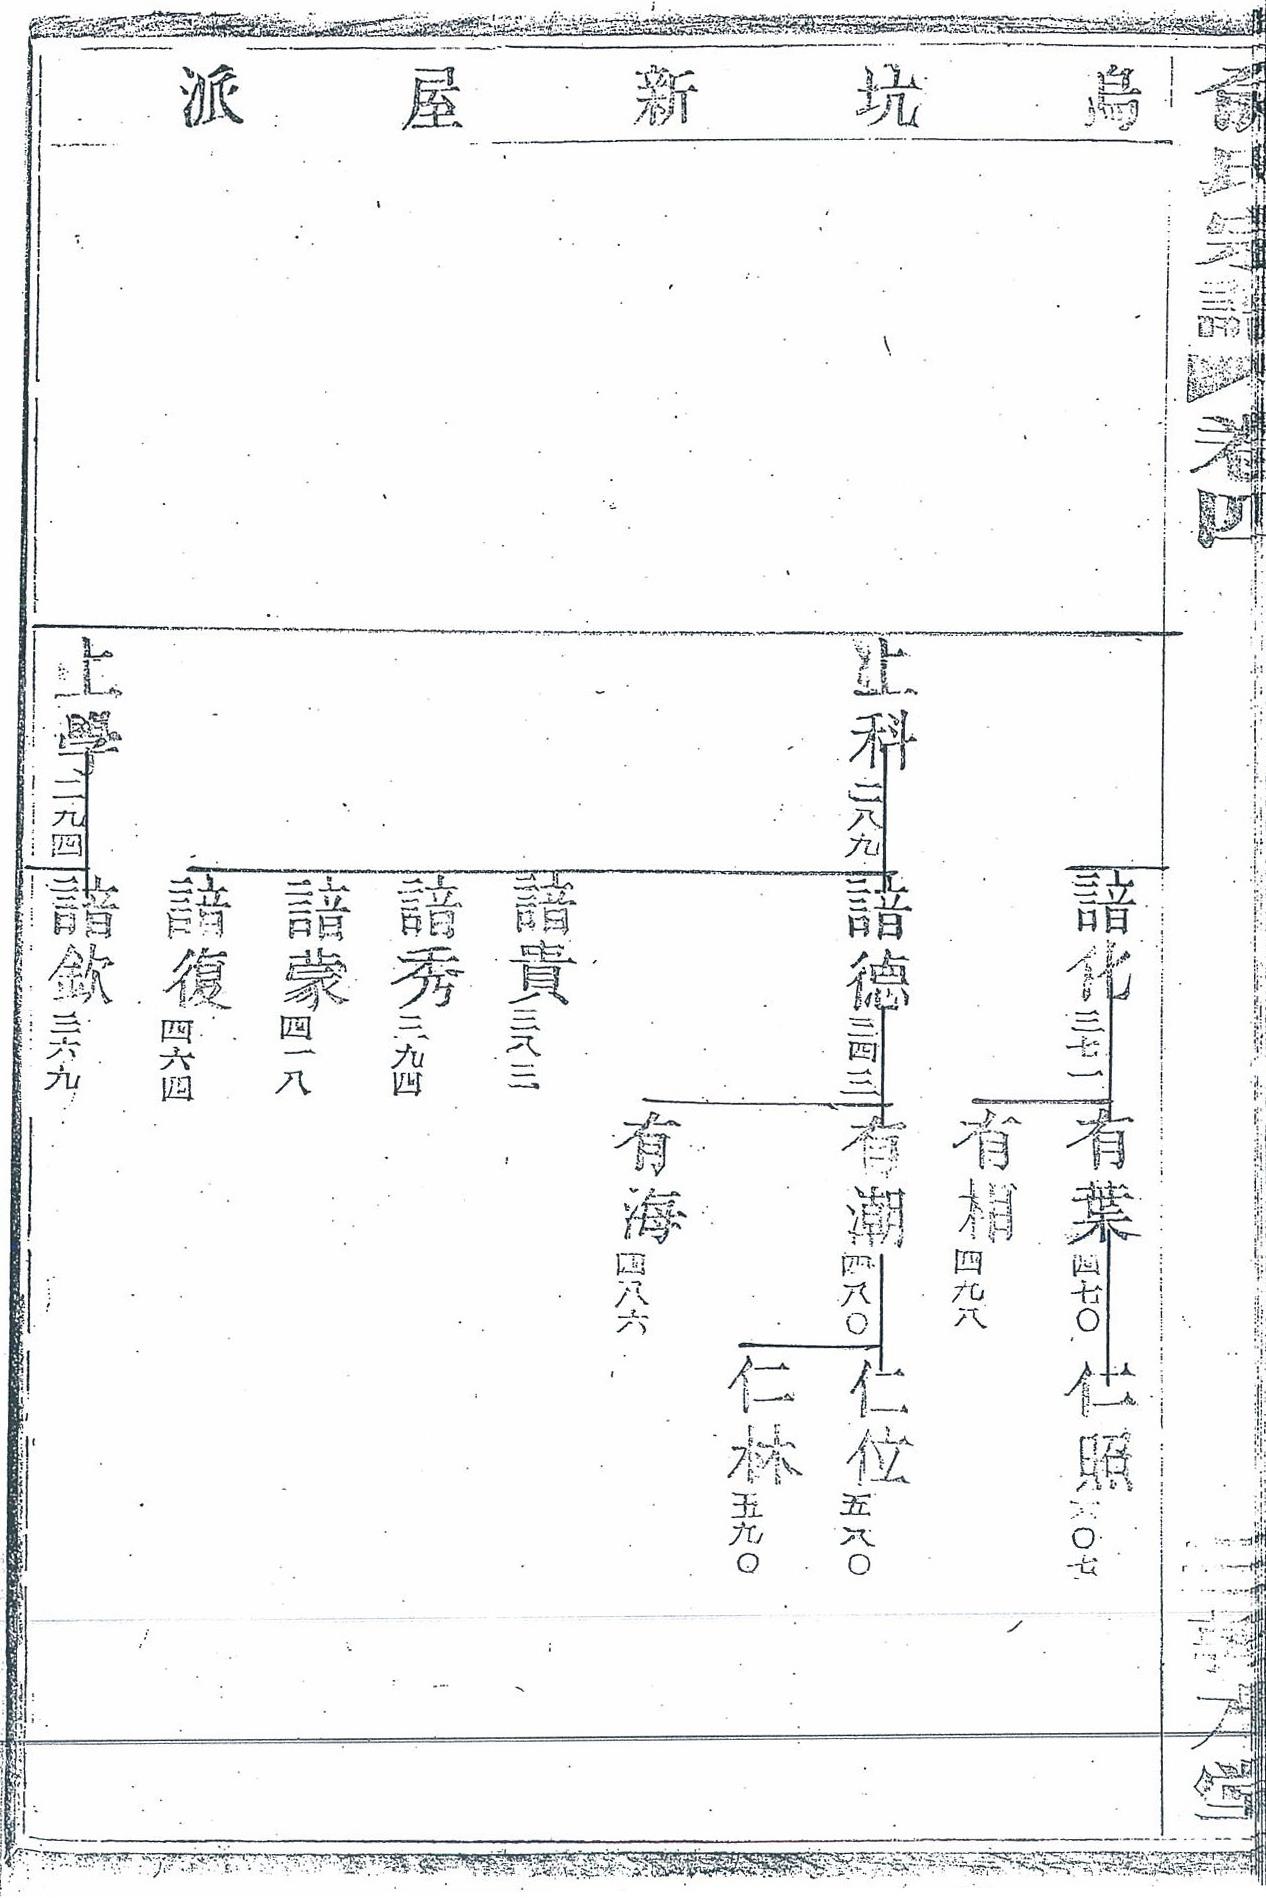 俞氏宗譜 卷四
烏坑新屋派
諳化 三七一
有葉 四七〇
仁照 六〇七
有相 四九八
上科 二八九
諳德 三四三
有潮 四八〇
仁位 五八〇
仁林 五九〇
有海 四八六
諳貴 三八三
諳秀 三九四
諳蒙 四一八
諳復 四六四
上學 二九四
諳欽 三六九